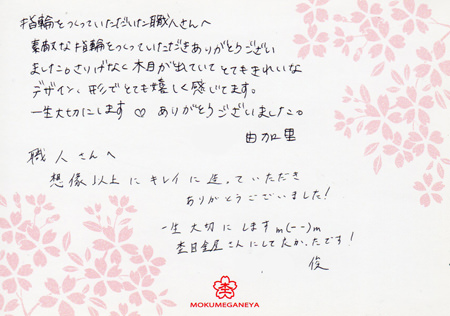 指輪をつくっていただいた職人さんへ
素敵な指輪をつくっていただきありがとうござい
ました。さりげなく木目が出ていてとてもきれいな
デザイン、形でとても嬉しく感じてます。
一生大切にします♡ ありがとうございました。
由加里
職人さんへ
想像以上にキレイに造っていただき
ありがとうございました!
一生大切にしますm(--)m
杢目金屋さんにしてよかったです!
俊
MOKUMEGANEYA